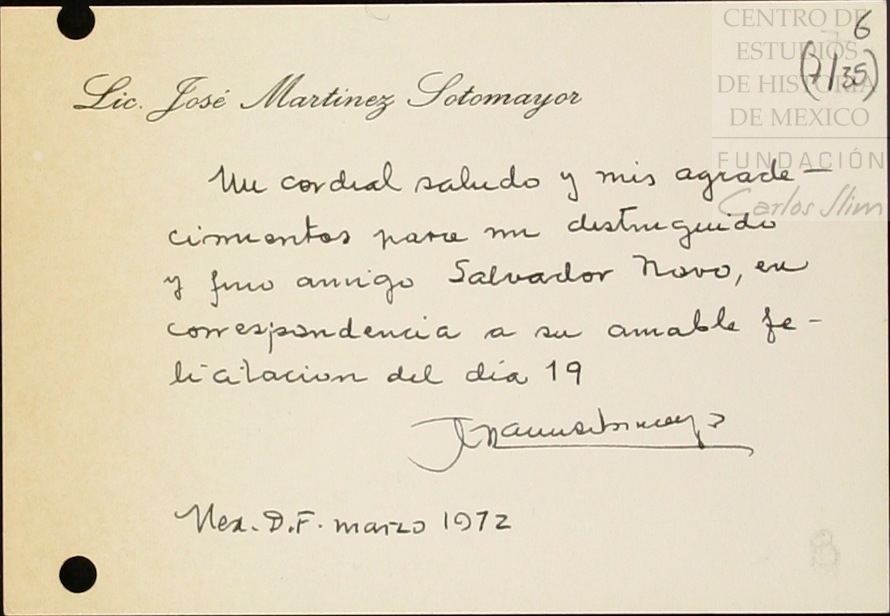 CENTRO DE
ESTUDIOS
DE HISTORIA
DE MEXICO
FUNDACIÓN
Carlos Slim
6
(7/35)
Lic. José Martinez Sotomayor
Un cordial saludo y mis agrade-
cimientos para mi distinguido
y fino amigo Salvador Novo, en
correspondencia a su amable fe-
licitacion del día 19
Mex. D.F. marzo 1972